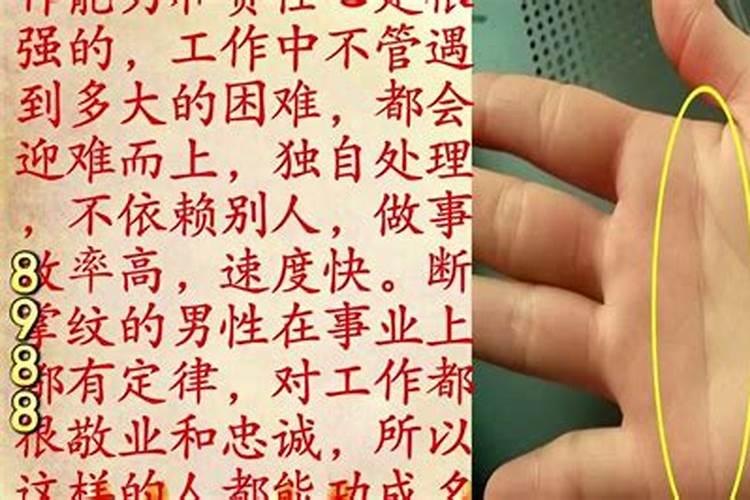 作能力和责任心是很
强的，工作中不管遇
到多大的困难，都会
迎难而上，独自处理
，不依赖别人，做事
效率高，速度快。断
掌纹的男性在事业上
都有定律，对工作都
很敬业和忠诚，所以
这样的人都能功成名
8988